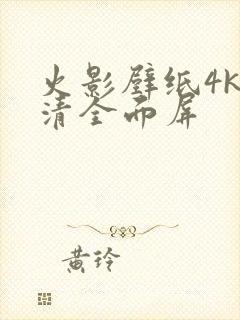 火影壁纸4K
清全面屏
黄玲